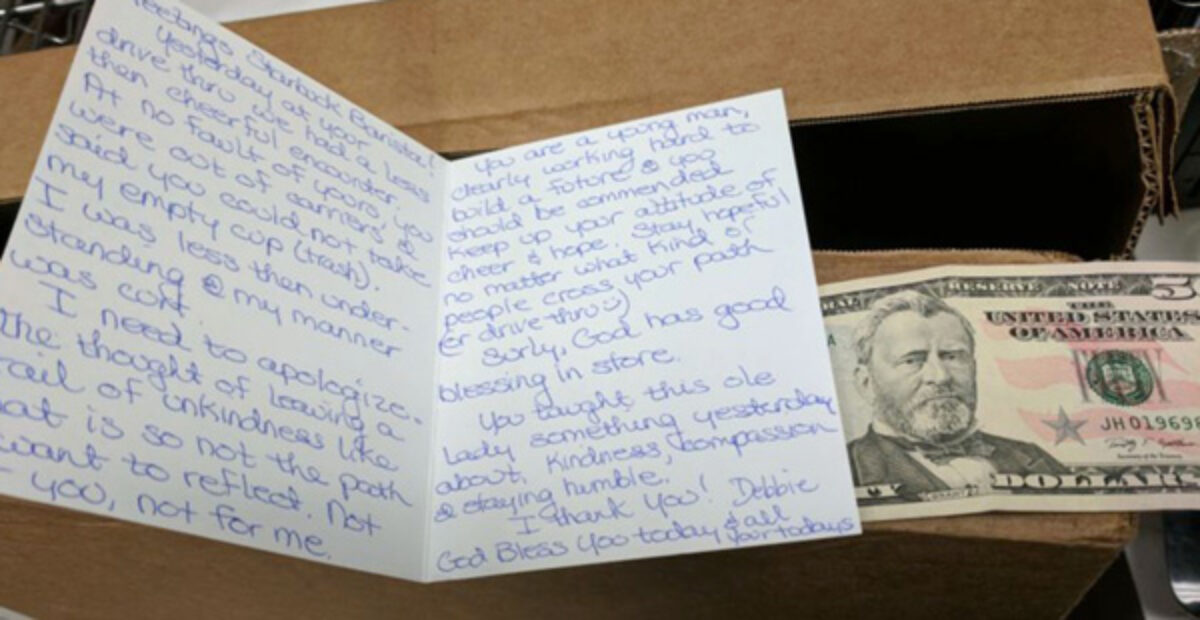 Starbuck Barista!
Yesterday at your
drive thru we had a less
then cheerful encounter.
At no fault of yours, you
were out of carriers &
said you could not take
my empty cup (trash).
I was less then under-
standing & my manner
was curt.
I need to apologize-
the thought of leaving a
of unkindness like
is so not the path
want to reflect. Not
you, not for me.
You are a young man,
clearly working hard to
build a future & you
should be commended
Keep up your attitude of
cheer & hope. Stay hopeful
no matter what kind of
people cross your path
(er drive thru :)
Surly, God has good
blessing in store.
You taught this ole
lady something yesterday
about, kindness, compassion
& staying humble.
I thank you! Debbie
God Bless you today & all
your todays
RESERVE NOTE
5
THE
UNITED STATES
OF AMERICA
JH 01969
DOLLARS